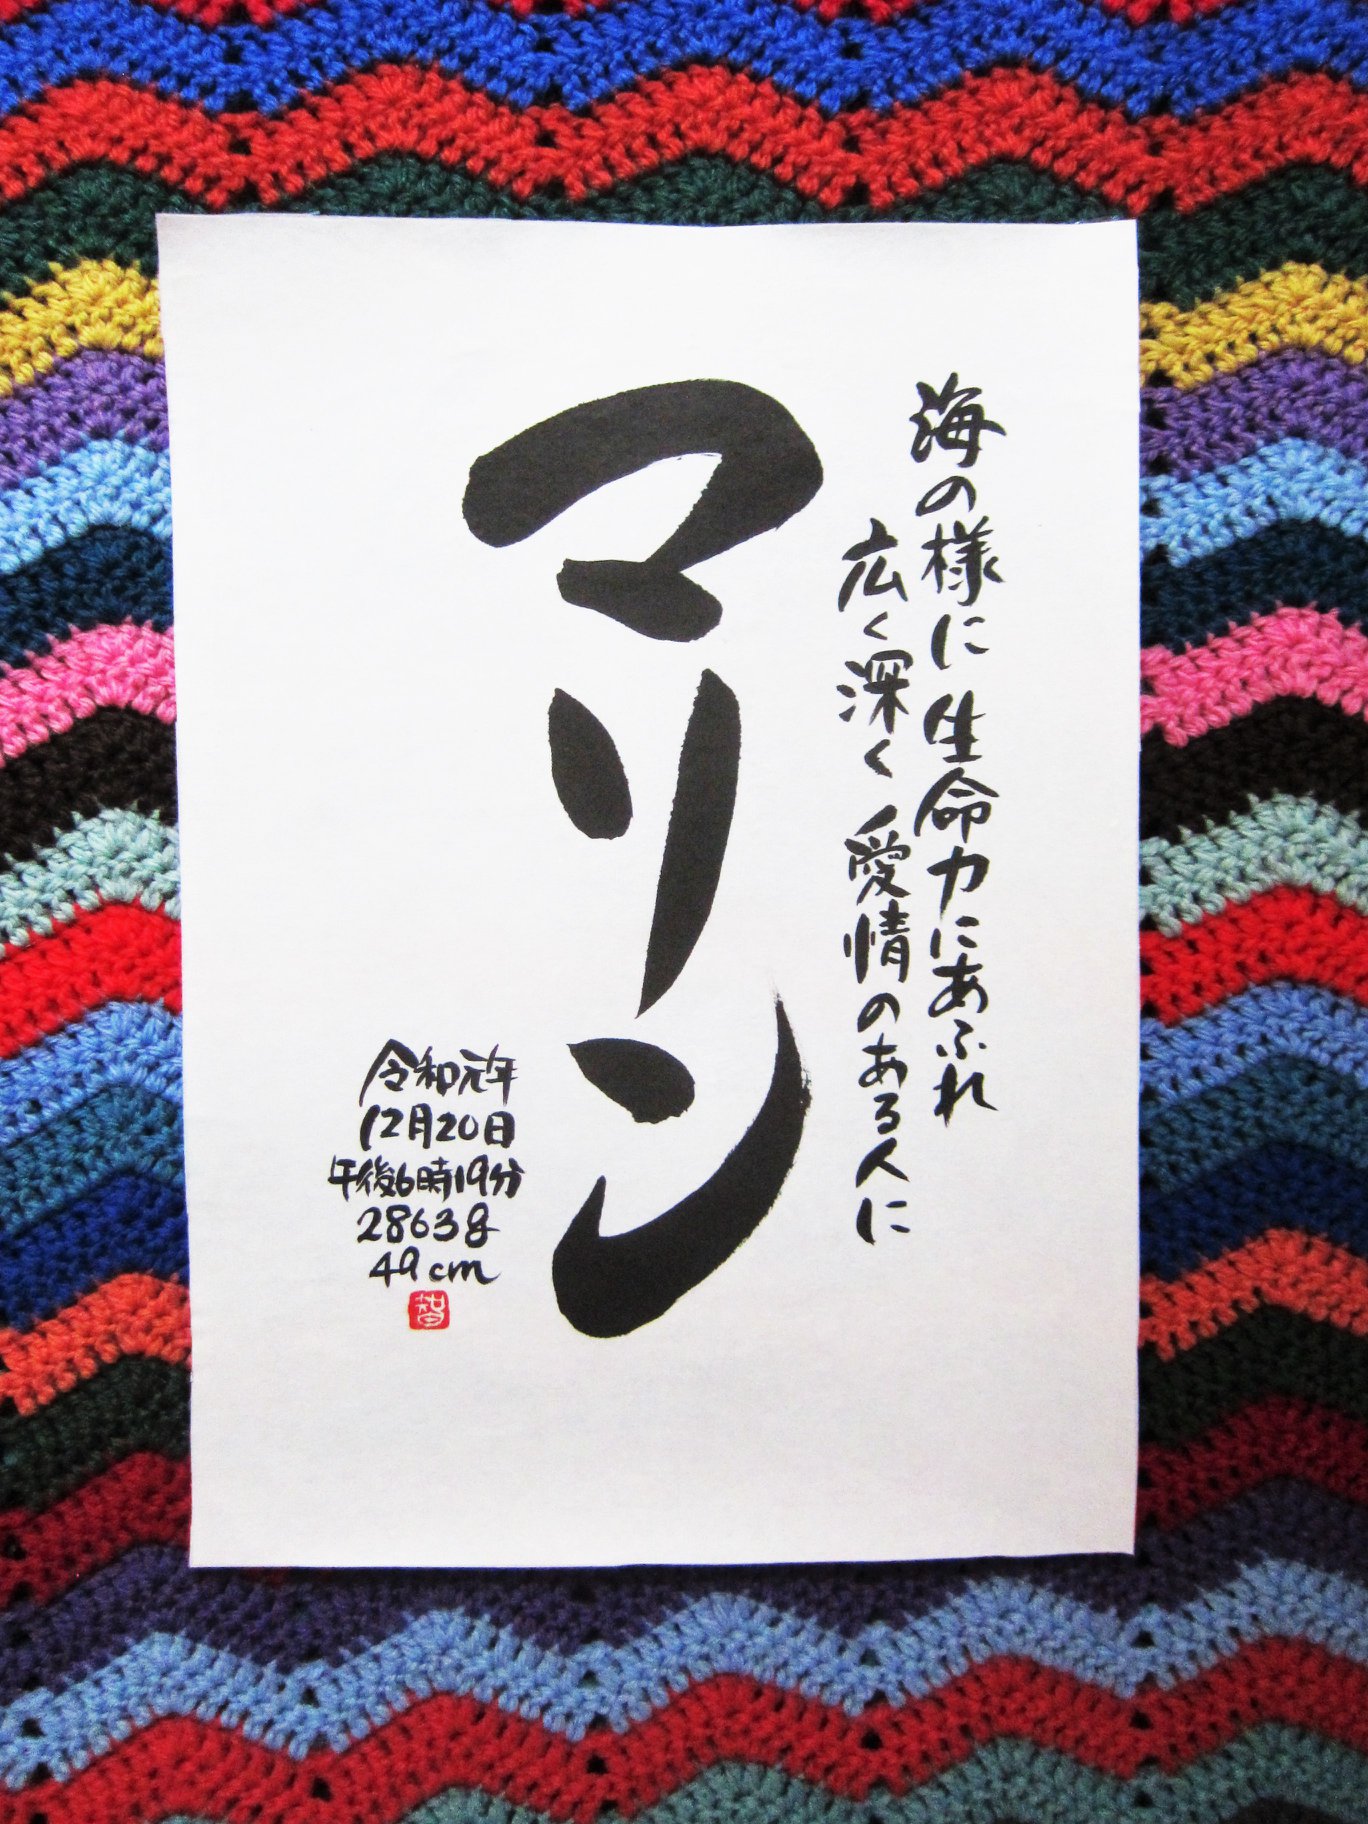 海の様に生命力にあふれ
広く深く愛情のある人に
マリン
令和元年
12月20日
午後6時19分
2863g
49cm
智